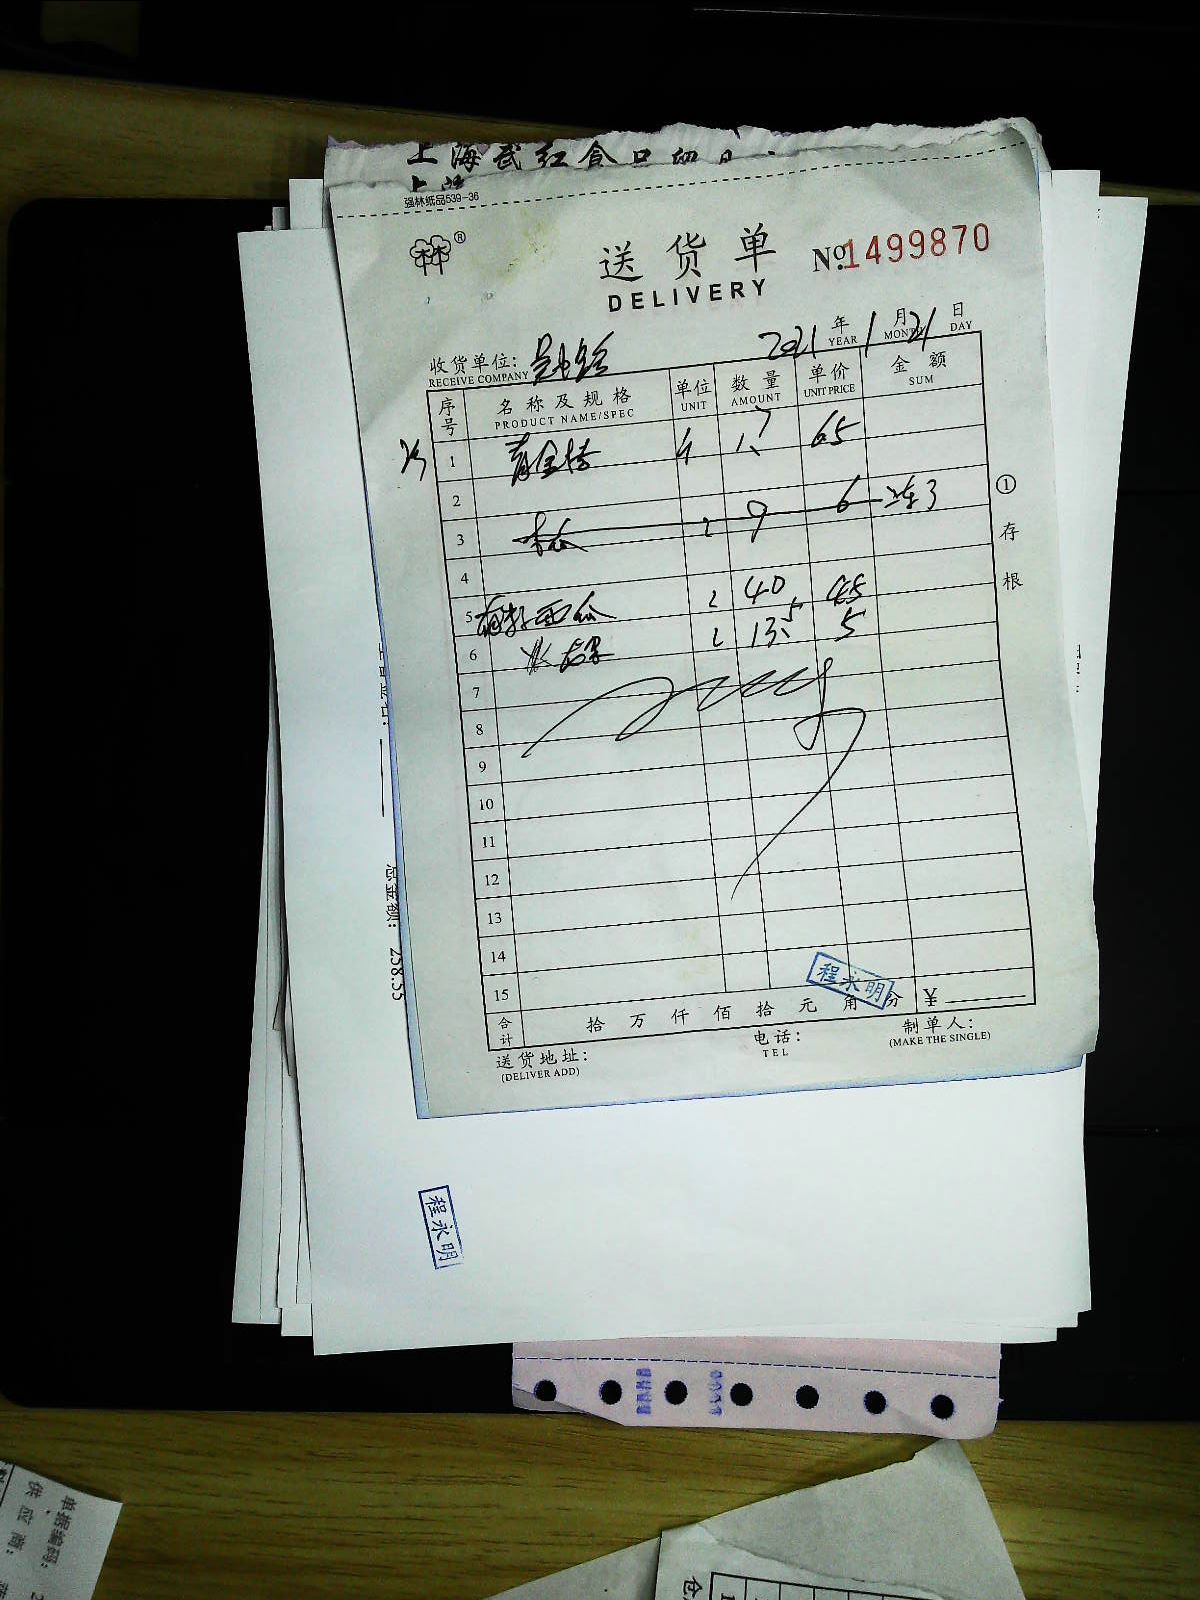 上海武红食品
强林纸品539-36
林林®
送货单 №1499870
DELIVERY
2021年1月21日
YEAR MONTH DAY
收货单位：
RECEIVE COMPANY
序号 名称及规格 单位 数量 单价 金额
PRODUCT NAME/SPEC UNIT AMOUNT UNIT PRICE SUM
1 青金桔 斤 1.7 65
2
3 木瓜 9 6
4
5 西瓜 40 4.8
6 水 13.5 5
7
8
9
10
11
12
13
14
15
程永明
合计 拾万仟佰拾元角分 ¥
送货地址：
(DELIVER ADD)
电话：
TEL
制单人：
(MAKE THE SINGLE)
①存根
总金额： 258.55
程永明
单据编码：
供应商：